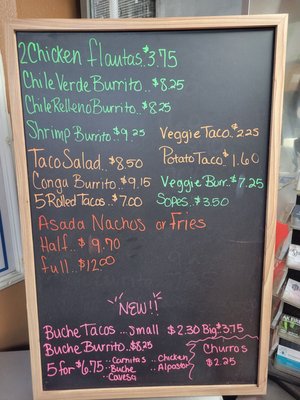 2 Chicken flautas..$3.75
Chile Verde Burrito..$8.25
Chile Relleno Burrito..$8.25
Shrimp Burrito..$9.25
Veggie Taco.$2.25
Taco Salad..$8.50
Potato Taco $1.60
Conga Burrito.$9.15
Veggie Burr..$7.25
5 Rolled Tacos..$7.00
Sopes..$3.50
Asada Nachos or Fries
Half..$9.70
full..$12.00
NEW!!
Buche Tacos...Small $2.30 Big $3.75
Buche Burrito..$8.25
5 for $6.75
..Carnitas
..Buche
..Cavesa
..Chicken
..Alpastor
Churros
$2.25